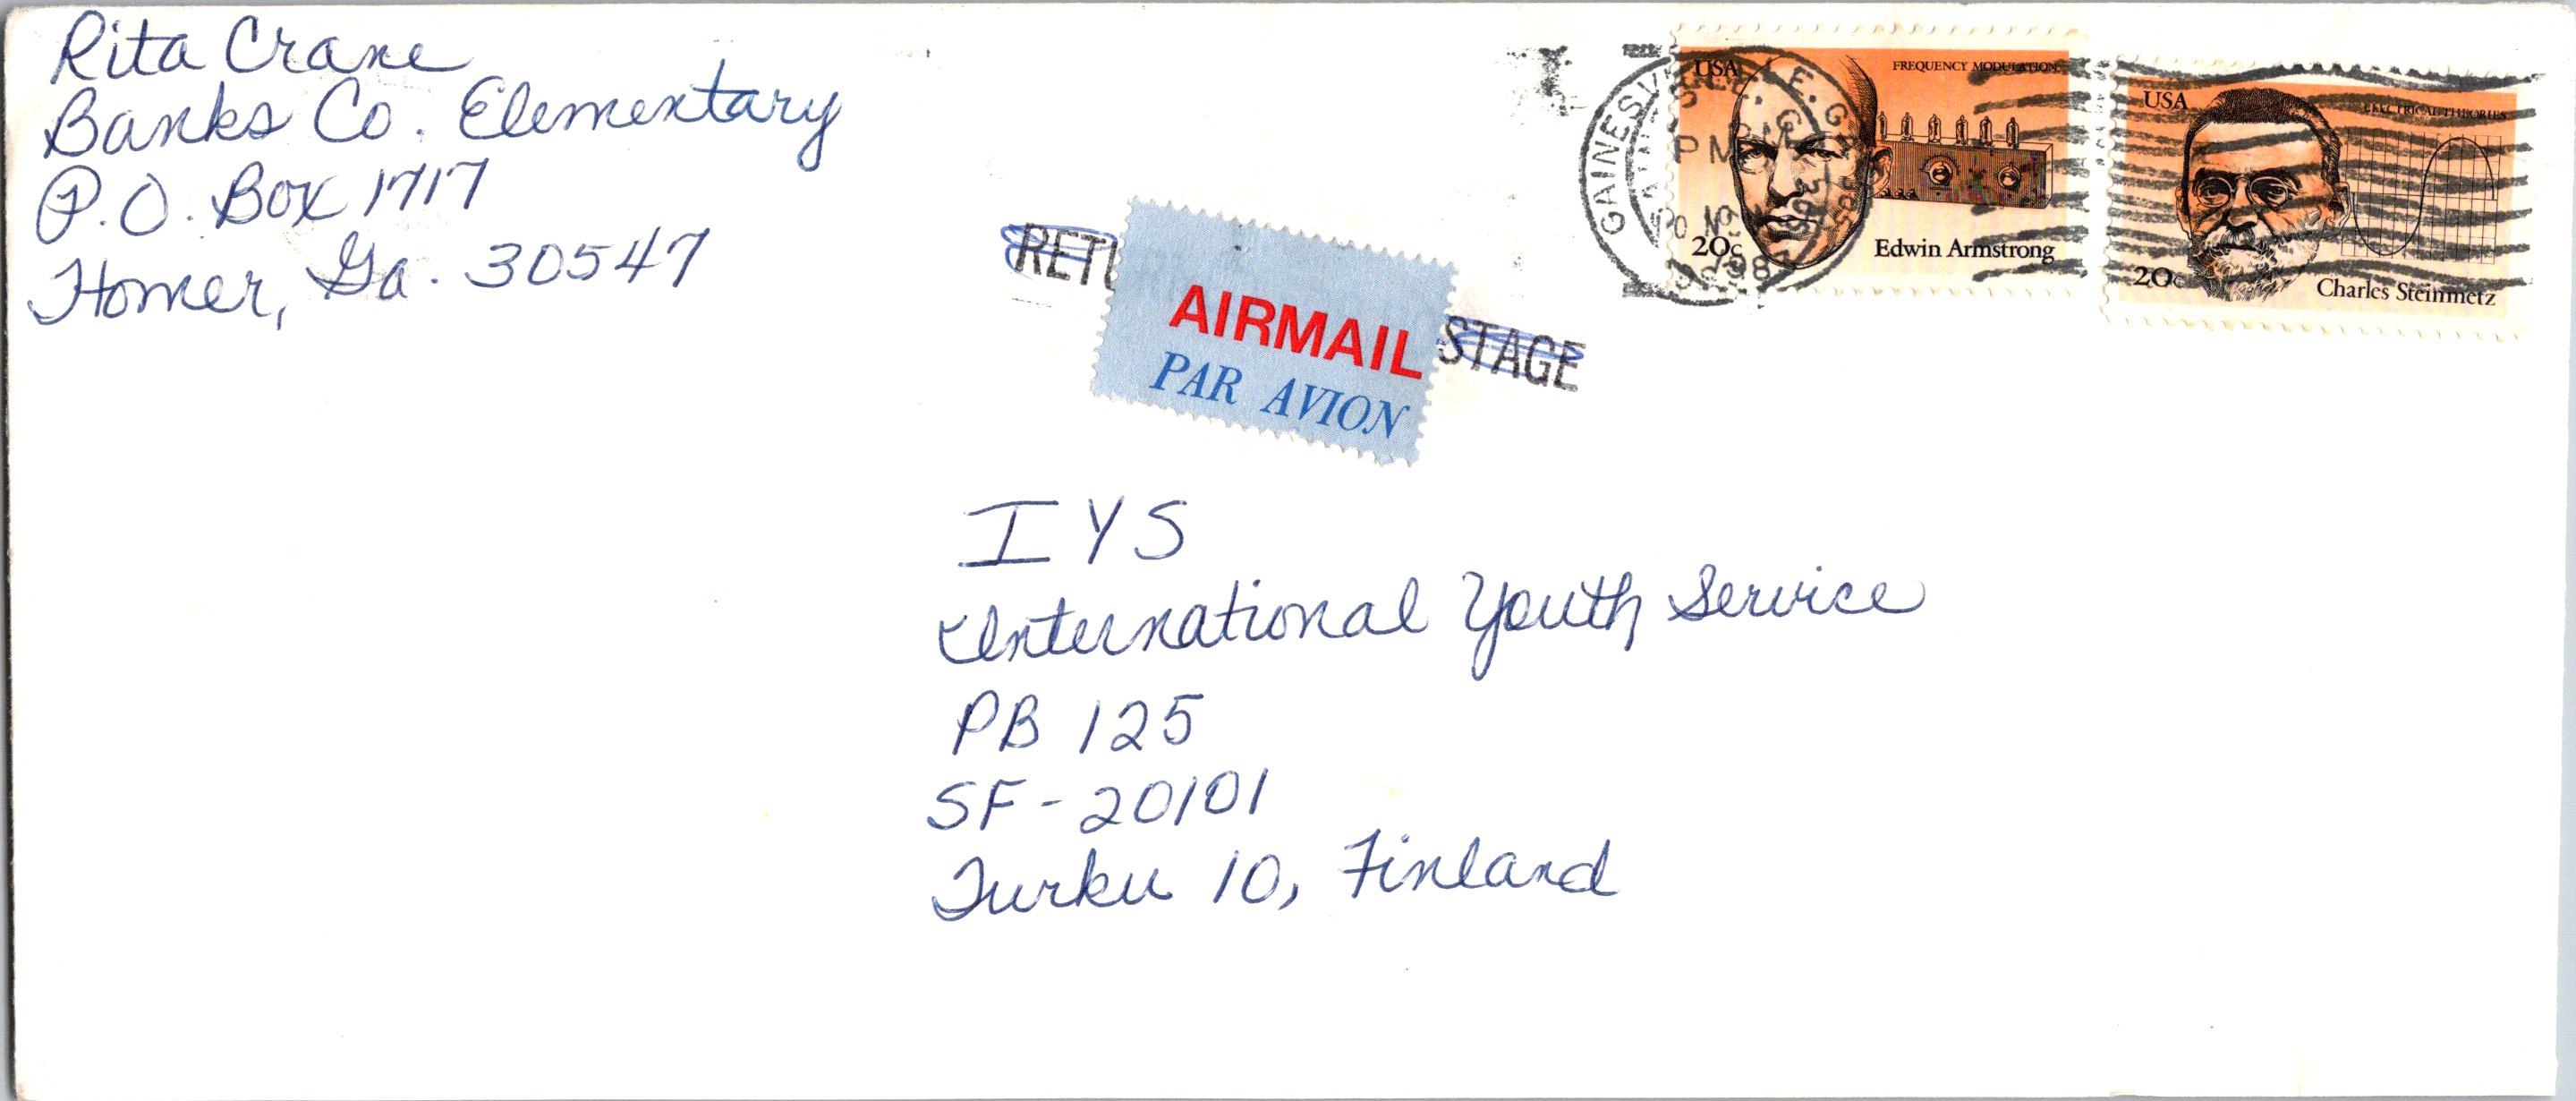 Rita Crane
Banks Co. Elementary
P.O. Box 1717
Homer, Ga. 30547
RETU
STAGE
AIRMAIL
PAR AVION
GAINESV
PM
USA
FREQUENCY MODULATION
20c
Edwin Armstrong
USA
ELECTRICAL THEORIES
20c
Charles Steinmetz
IYS
International Youth Service
PB 125
SF-20101
Turku 10, Finland